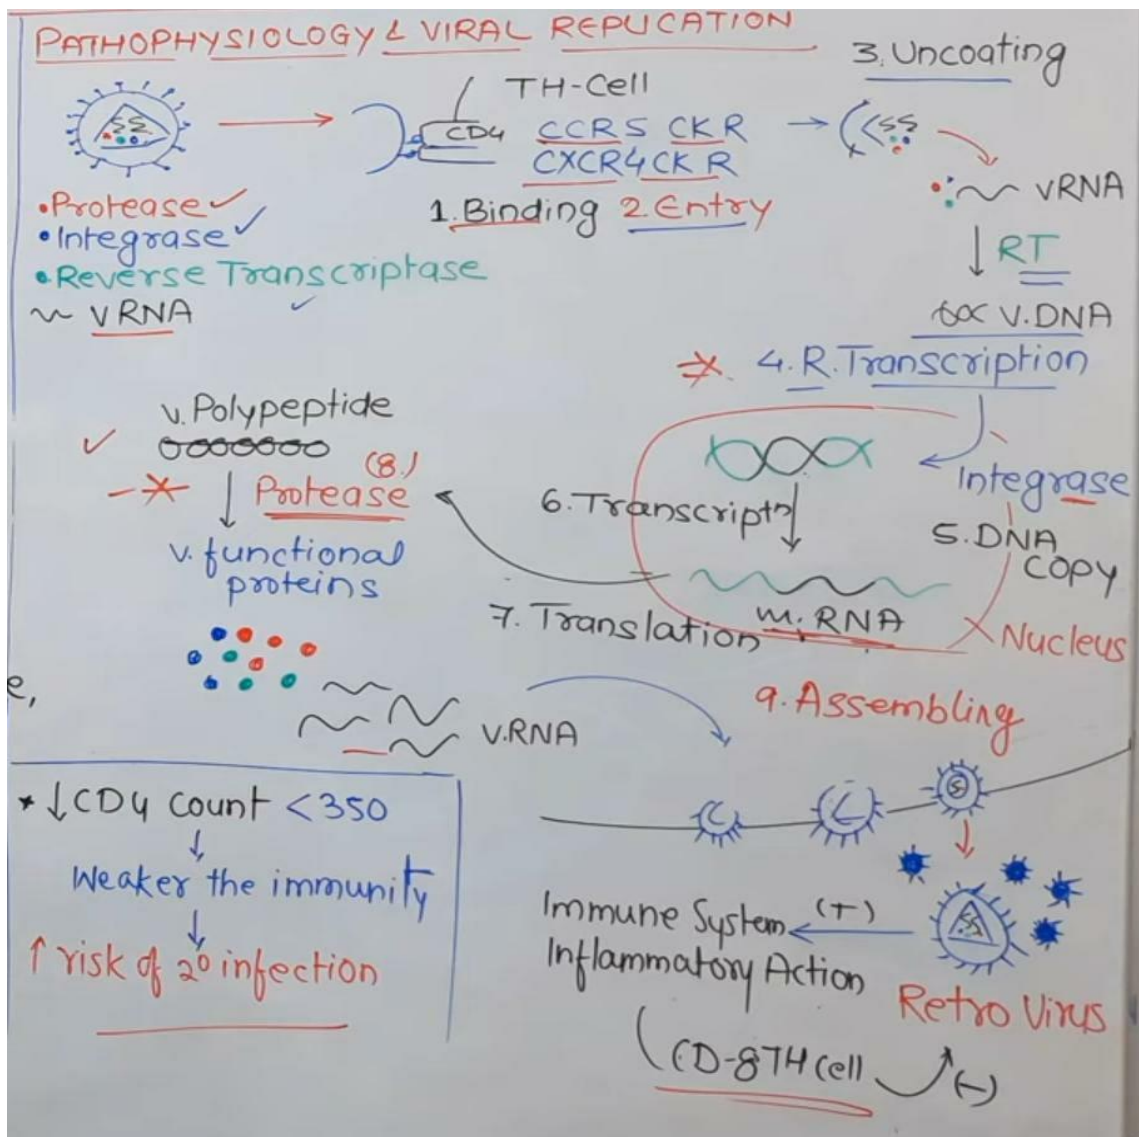 PATHOPHYSIOLOGY & VIRAL REPLICATION
TH-Cell
CD4
CCR5 CKR
CXCR4 CKR
1. Binding 2. Entry
3. Uncoating
• Protease ✓
• Integrase ✓
• Reverse Transcriptase
✓
~ VRNA
VRNA
↓ RT
V.DNA
4. R. Transcription
Integrase
5. DNA
COPY
6. Transcriptn
m.RNA
Nucleus
7. Translation
v. Polypeptide
✓
(8.)
↓ Protease
v. functional
proteins
e,
V.RNA
9. Assembling
* ↓ CD4 Count <350
↓
Weaker the immunity
↓
↑ risk of 2° infection
Retro Virus
(+)
Immune System
Inflammatory Action
CD-8 TH cell
(-)